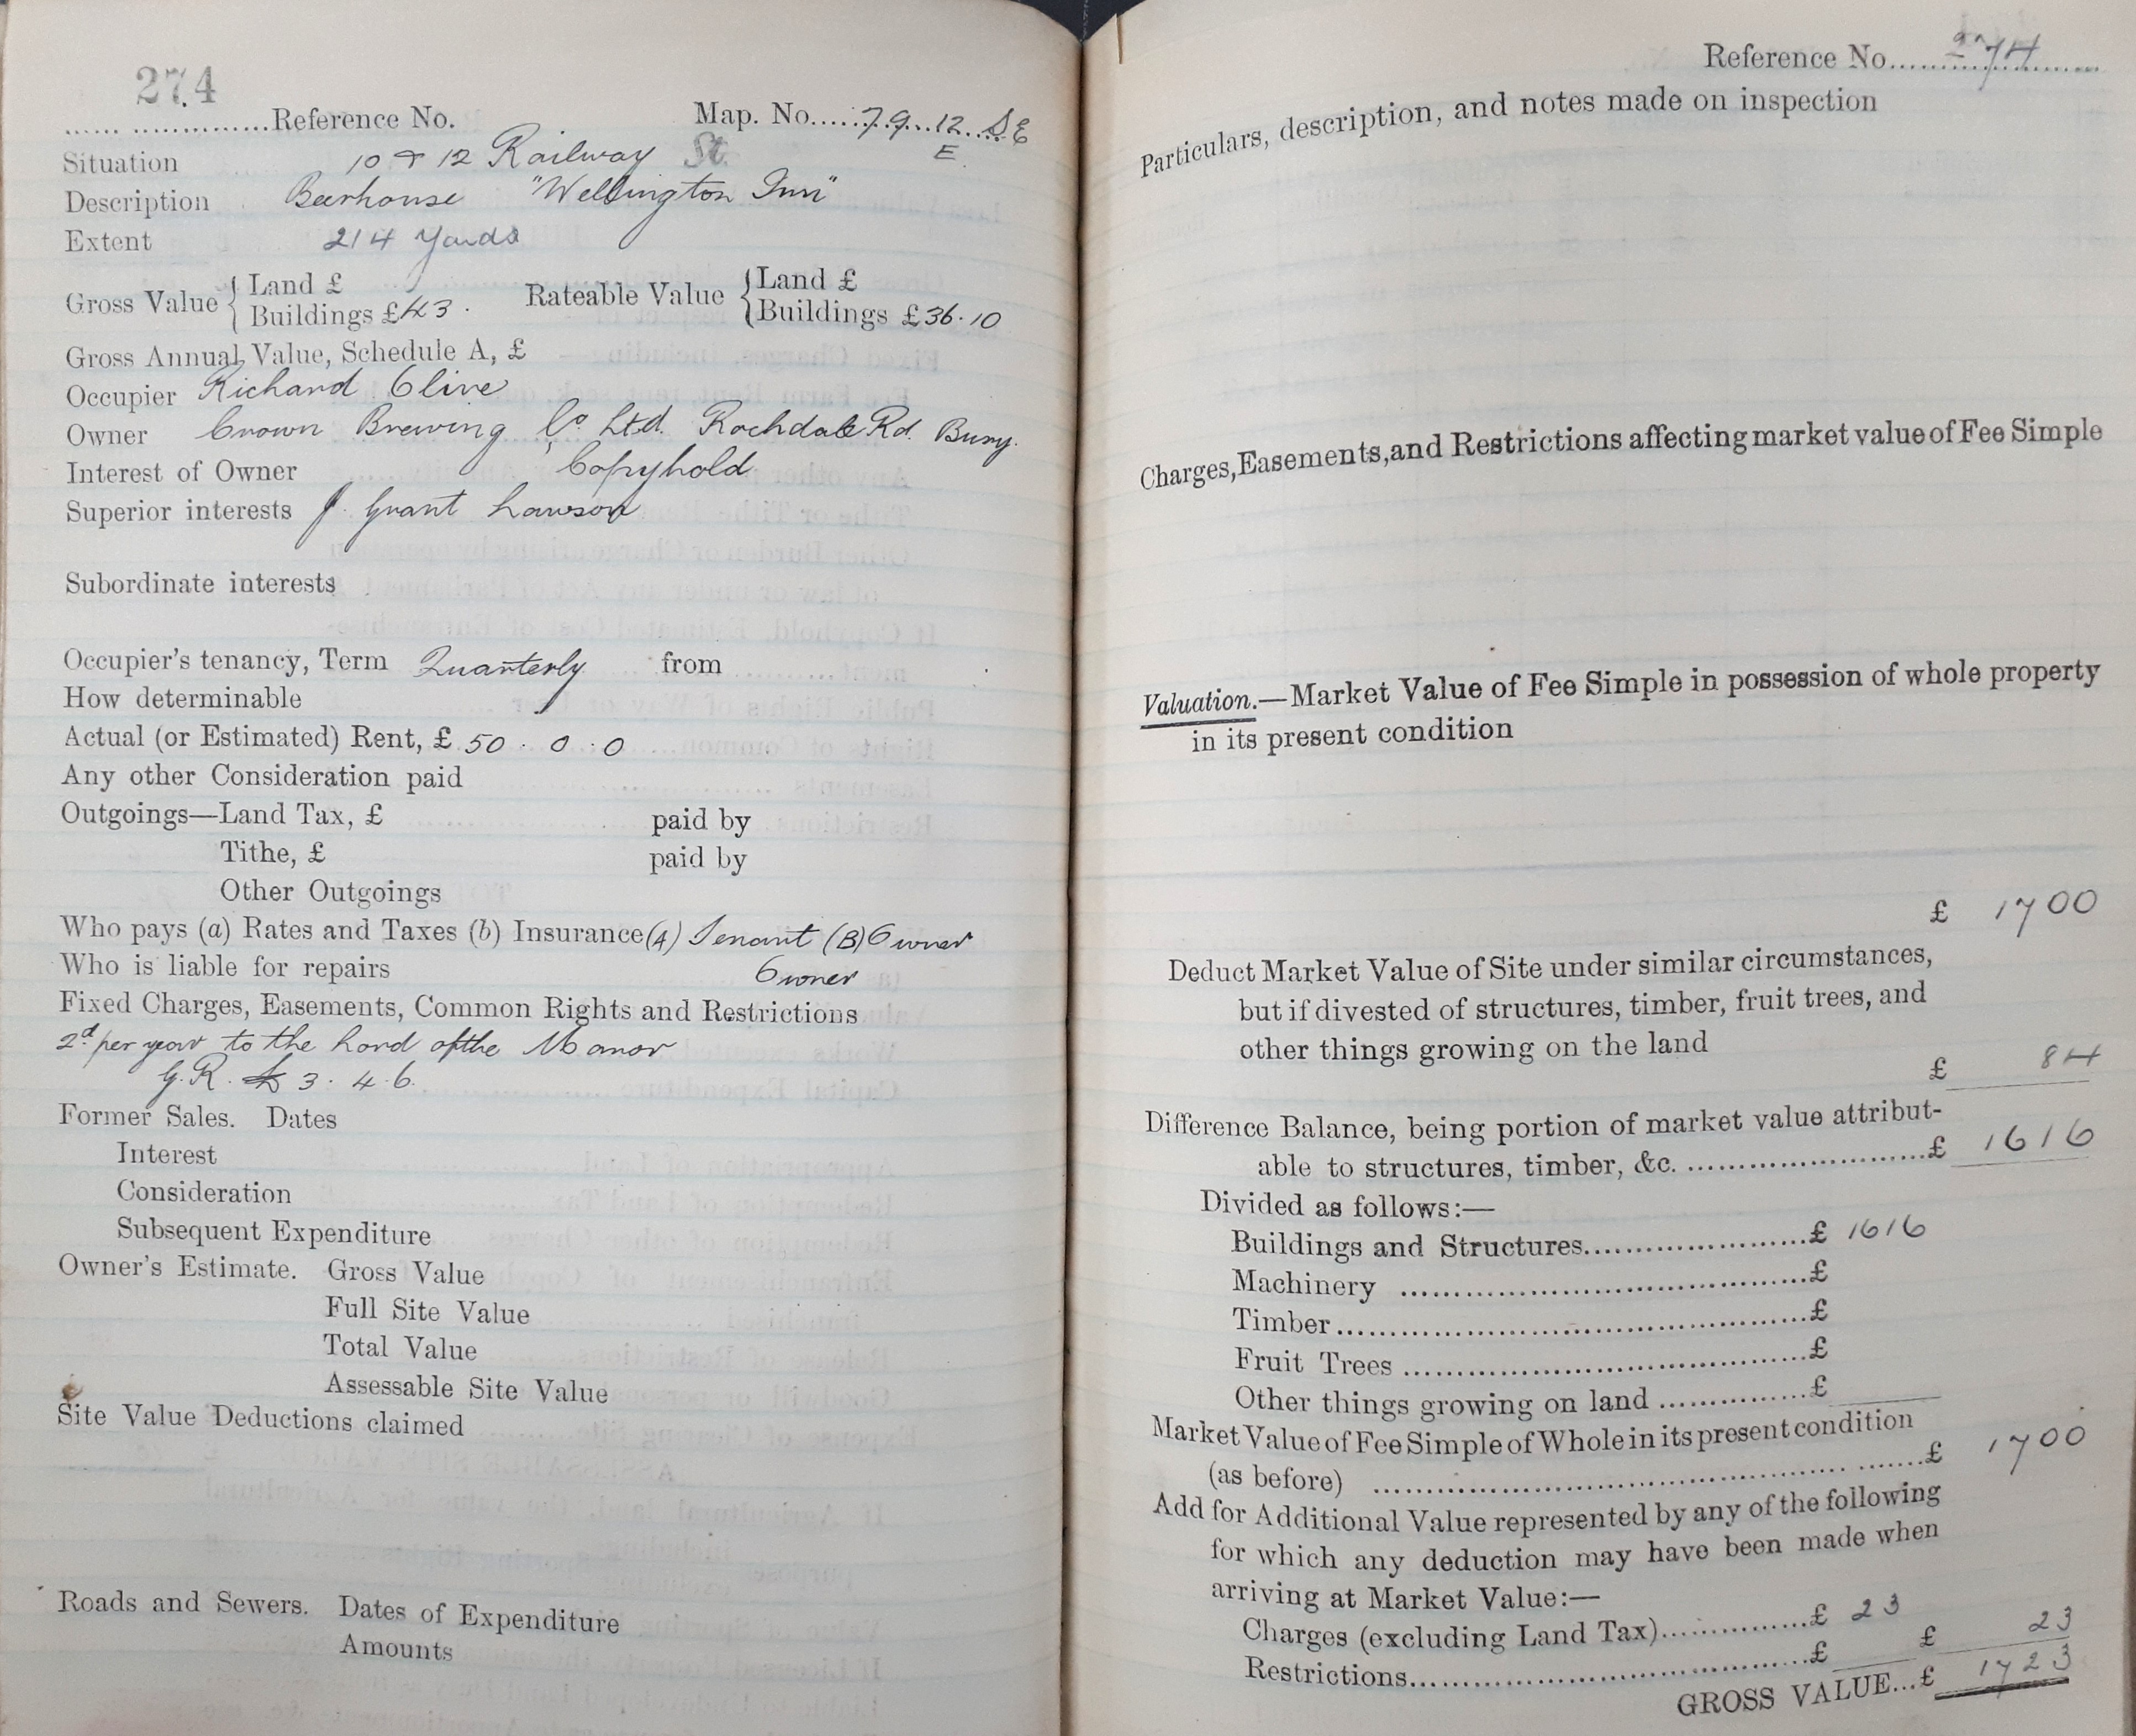 274
...................Reference No. Map. No.....79..12..SE
E
Situation 10 & 12 Railway St.
Description Beerhouse "Wellington Inn"
Extent 214 Yards
Gross Value { Land £ Rateable Value { Land £
Buildings £43. Buildings £36.10
Gross Annual Value, Schedule A, £
Occupier Richard Clive
Owner Crown Brewing Co Ltd. Rochdale Rd. Bury.
Interest of Owner Copyhold
Superior interests J. Grant Lawson
Subordinate interests
Occupier's tenancy, Term Quarterly from
How determinable
Actual (or Estimated) Rent, £ 50 . 0 . 0
Any other Consideration paid
Outgoings—Land Tax, £ paid by
Tithe, £ paid by
Other Outgoings
Who pays (a) Rates and Taxes (b) Insurance (A) Tenant (B) Owner
Who is liable for repairs Owner
Fixed Charges, Easements, Common Rights and Restrictions
2d per year to the Lord of the Manor
G.R. £3.4.6.
Former Sales. Dates
Interest
Consideration
Subsequent Expenditure
Owner's Estimate. Gross Value
Full Site Value
Total Value
Assessable Site Value
Site Value Deductions claimed
Roads and Sewers. Dates of Expenditure
Amounts
Reference No.....274
Particulars, description, and notes made on inspection
Charges, Easements, and Restrictions affecting market value of Fee Simple
Valuation.—Market Value of Fee Simple in possession of whole property
in its present condition
£ 1700
Deduct Market Value of Site under similar circumstances,
but if divested of structures, timber, fruit trees, and
other things growing on the land
£ 84
Difference Balance, being portion of market value attribut-
able to structures, timber, &c. ........................£ 1616
Divided as follows:—
Buildings and Structures........................£ 1616
Machinery ........................£
Timber........................£
Fruit Trees ........................£
Other things growing on land ............£
Market Value of Fee Simple of Whole in its present condition
(as before) ........................£ 1700
Add for Additional Value represented by any of the following
for which any deduction may have been made when
arriving at Market Value:—
Charges (excluding Land Tax)...............£ 23
Restrictions........................£ £ 23
GROSS VALUE...£ 1723